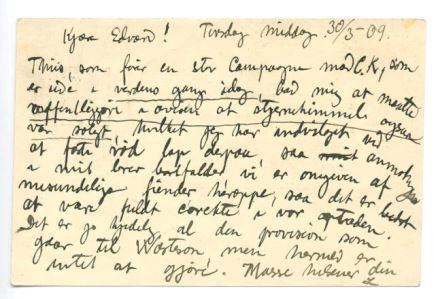 Kjære Edvard! Tirsdag middag. 30/3-09.
Thiis, som fører en stor Campagne mod C.K., som
er ude i verdens gang idag, bad mig at maatte
offentliggjøre i avisen at stjernehimmelen ogsaa
var solgt, hvilket jeg har indvilget ved
at fæste rød lap derpaa saa anmodning
i mit brev bortfalder vi er omgiven af
misundelige fiender heroppe, saa det er bedst
at være fuldt corekte i vor optræden.
Det er jo kjedelig al den provision som
gaar til men hermed er
intet at gjøre. Masse hilsener din
L